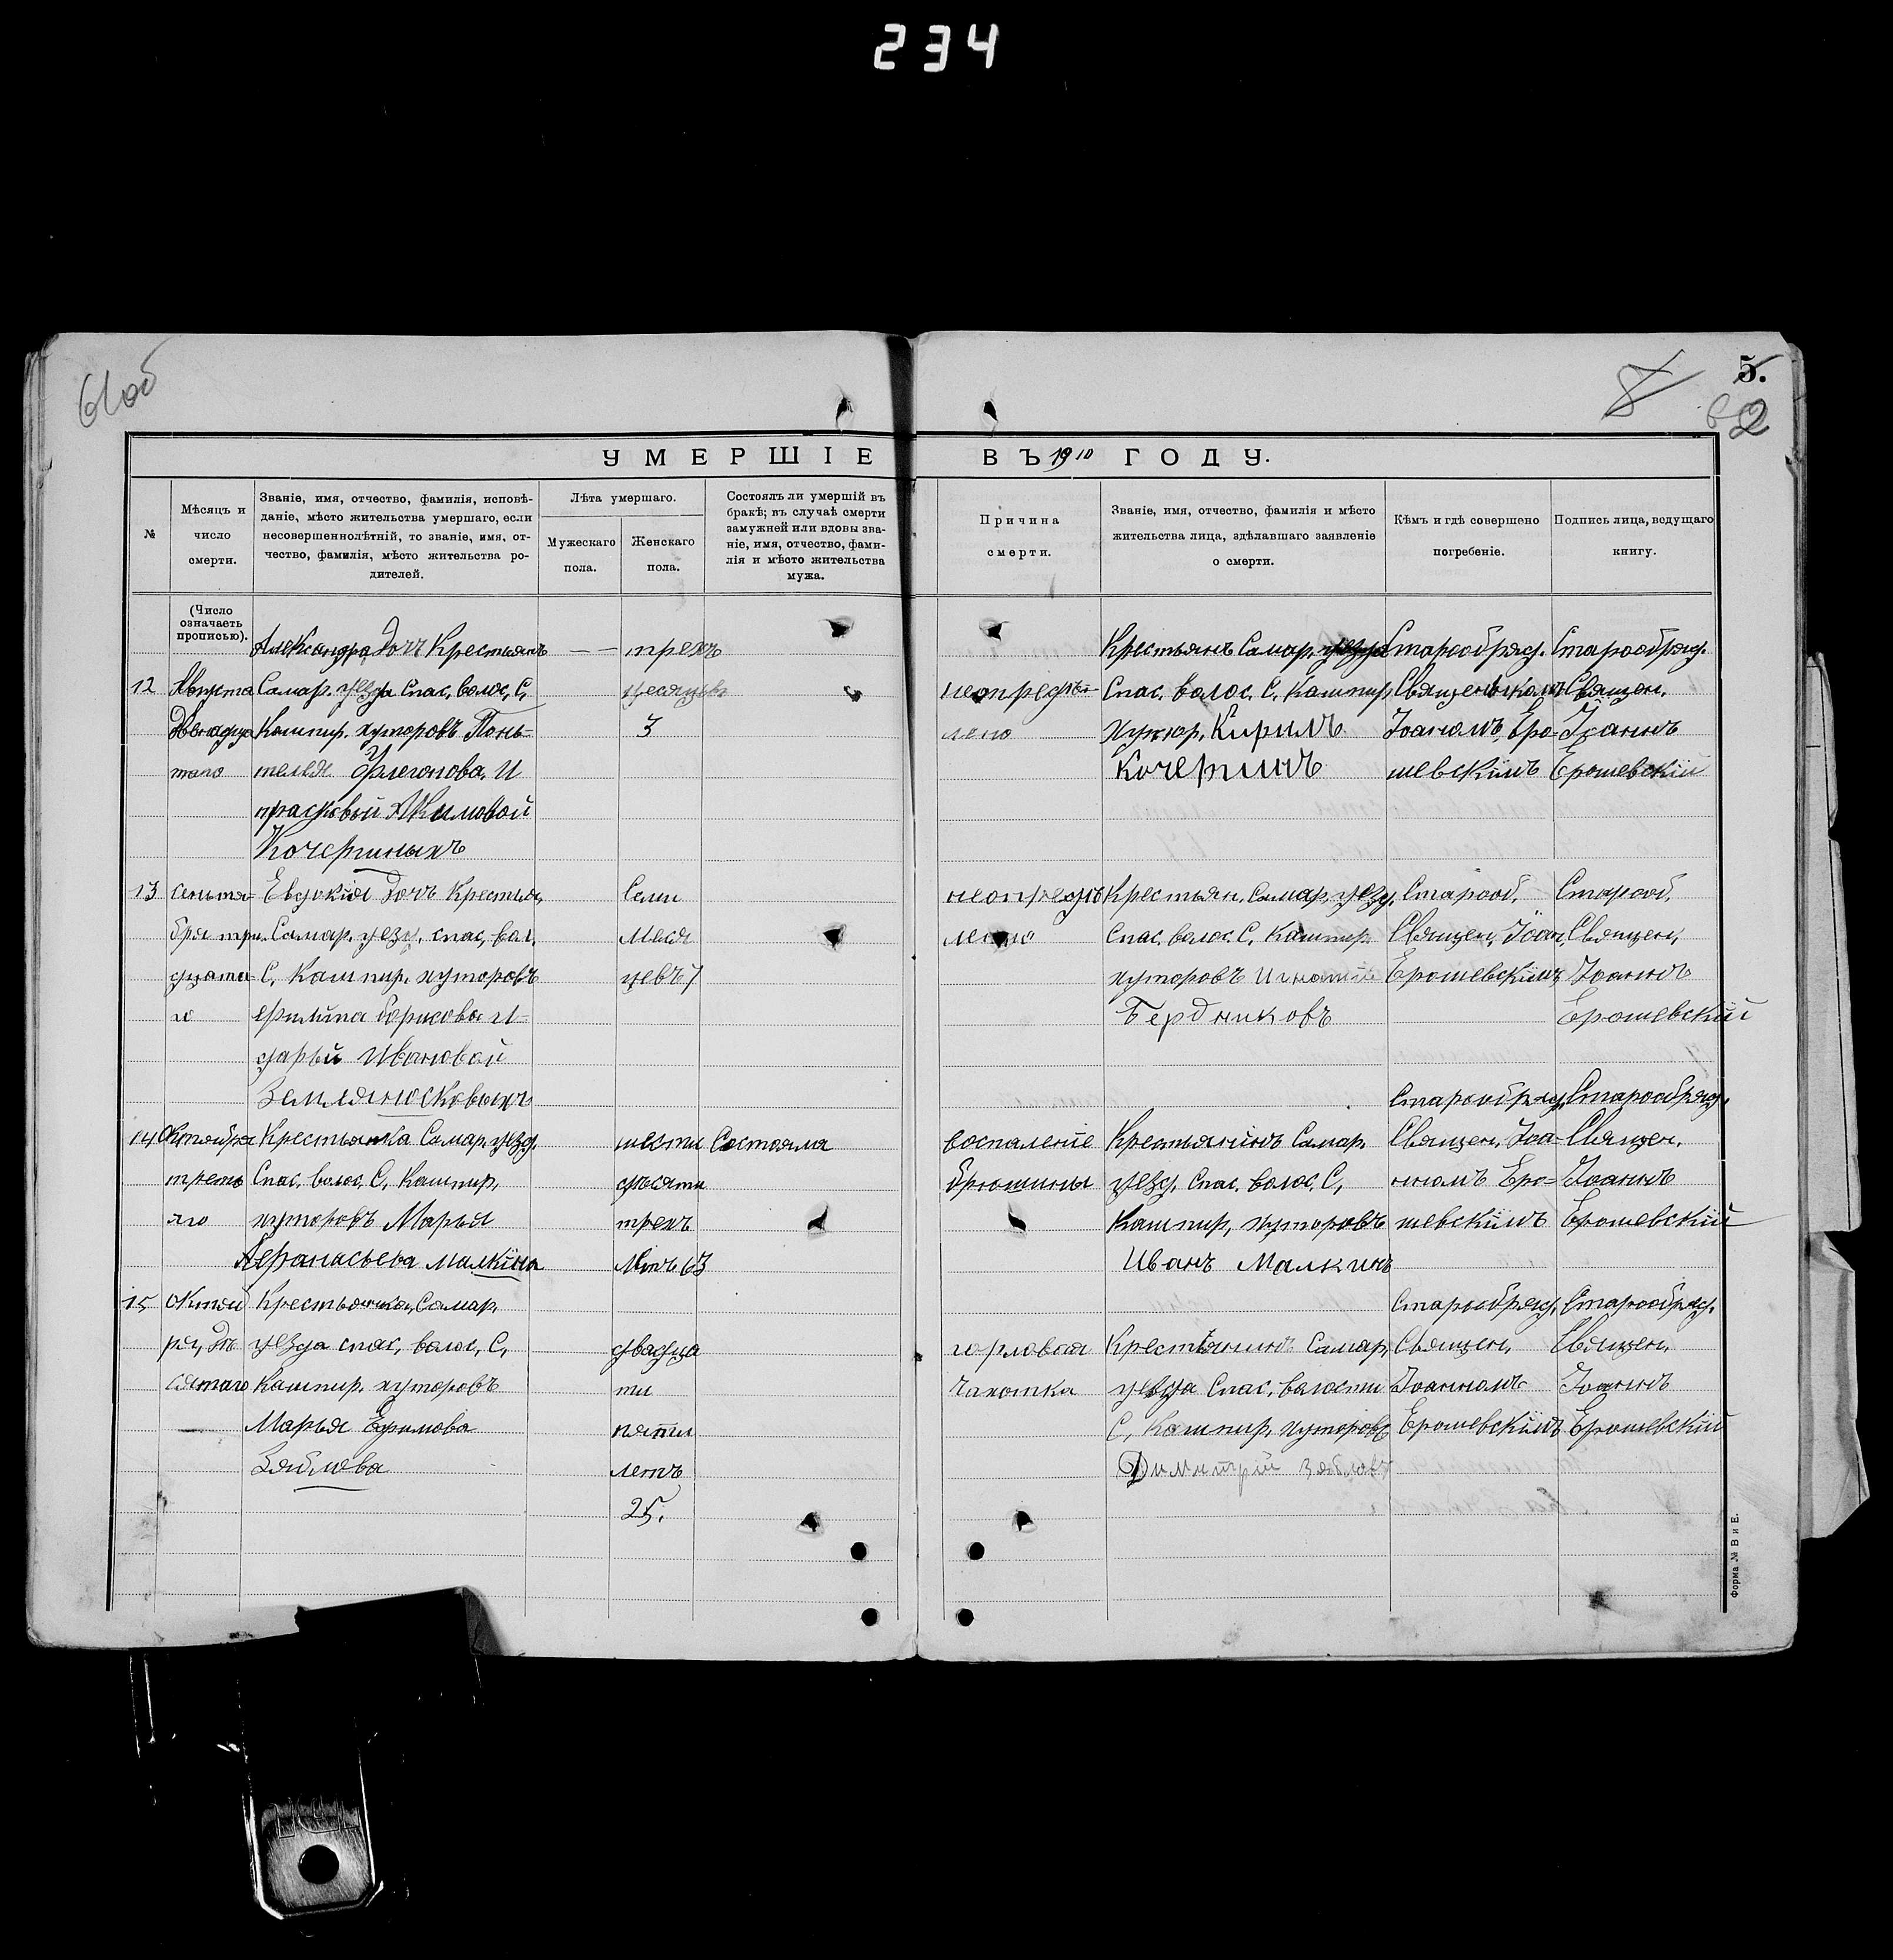 234
61об
5.
62
УМЕРШІЕ ВЪ 1910 ГОДУ.
№
Мѣсяцъ и
число
смерти.
Званіе, имя, отчество, фамилія, исповѣ-
даніе, мѣсто жительства умершаго, если
несовершеннолѣтній, то званіе, имя, от-
чество, фамилія, мѣсто жительства ро-
дителей.
Лѣта умершаго.
Мужескаго
пола.
Женскаго
пола.
Состоялъ ли умершій въ
бракѣ; въ случаѣ смерти
замужней или вдовы зва-
ніе, имя, отчество, фами-
лія и мѣсто жительства
мужа.
Причина
смерти.
Званіе, имя, отчество, фамилія и мѣсто
жительства лица, здѣлавшаго заявленіе
о смерти.
Кѣмъ и гдѣ совершено
погребеніе.
Подпись лица, ведущаго
книгу.
(Число
означаеть
прописью).
12
Августа
Двенадца
таго
Александра Дочъ Крестьянъ
Самар. уезда Спас. волос, С,
Кашпир. хуторовъ Понь-
телея Флегонова, И
прасковьи Акимовой
Кочергиныхъ
— —
трехъ
месяцевъ
3
неопреде-
лено
Крестьянъ Самар. уезда
Спас. волос. С, Кашпир
Хутор, Кирилъ
Кочергинъ
Старообряд.
Священикомъ
Іоаномъ, Еро-
шевскимъ
Старообряд.
Священ.
Іоаннъ
Ерошевскій
13
сентя-
бря три-
дцата-
го
Евдокія Дочъ Крестья,
Самар. уезд, спас, вол.
С, Кашпир, хуторовъ
филипа борисова И-
дарьи Ивановой
Землянюсковыхъ
Семи
Меся
цевъ 7
неопреде
лено
Крестьян. Самар, уезд,
Спас. волос. С, Кашпир.
хуторовъ Игнатій
Бердниковъ
Старооб,
Священ, Іоан,
Ерошевскимъ
Старооб,
Священ,
Іоаннъ
Ерошевскій
14
Октября
треть
яго
Крестьянка Самар, уезд.
Спас, волос, С, Кашпир,
хуторовъ Марья
Афанасьева Малкина
шести
десяти
трехъ
Летъ 63
Состояла
воспаление
брюшины
Крестьянинъ Самар,
уезд, Спас. волос. С,
Кашпир, хуторовъ
Иванъ Малкинъ
Старообряд,
Священ, Іоа-
нномъ Еро-
шевскимъ
Старообряд,
Священ.
Іоаннъ
Ерошевскій
15
Октяб
ря, де
сятаго
Крестьянка, Самар,
уезда спас, волос, С,
Кашпир. хуторовъ
Марья Ефимова
Зяблова
двадца
ти
пяти
летъ
25.
горловая
Чахотка
Крестьянинъ Самар,
уезда Спас, волости
С, Кашпир, хуторовъ
Димитрий Зябловъ
Старообряд,
Священ,
Іоанномъ
Ерошевскимъ
Старообряд,
Священ,
Іоаннъ
Ерошевскій
Форма № В и Е.